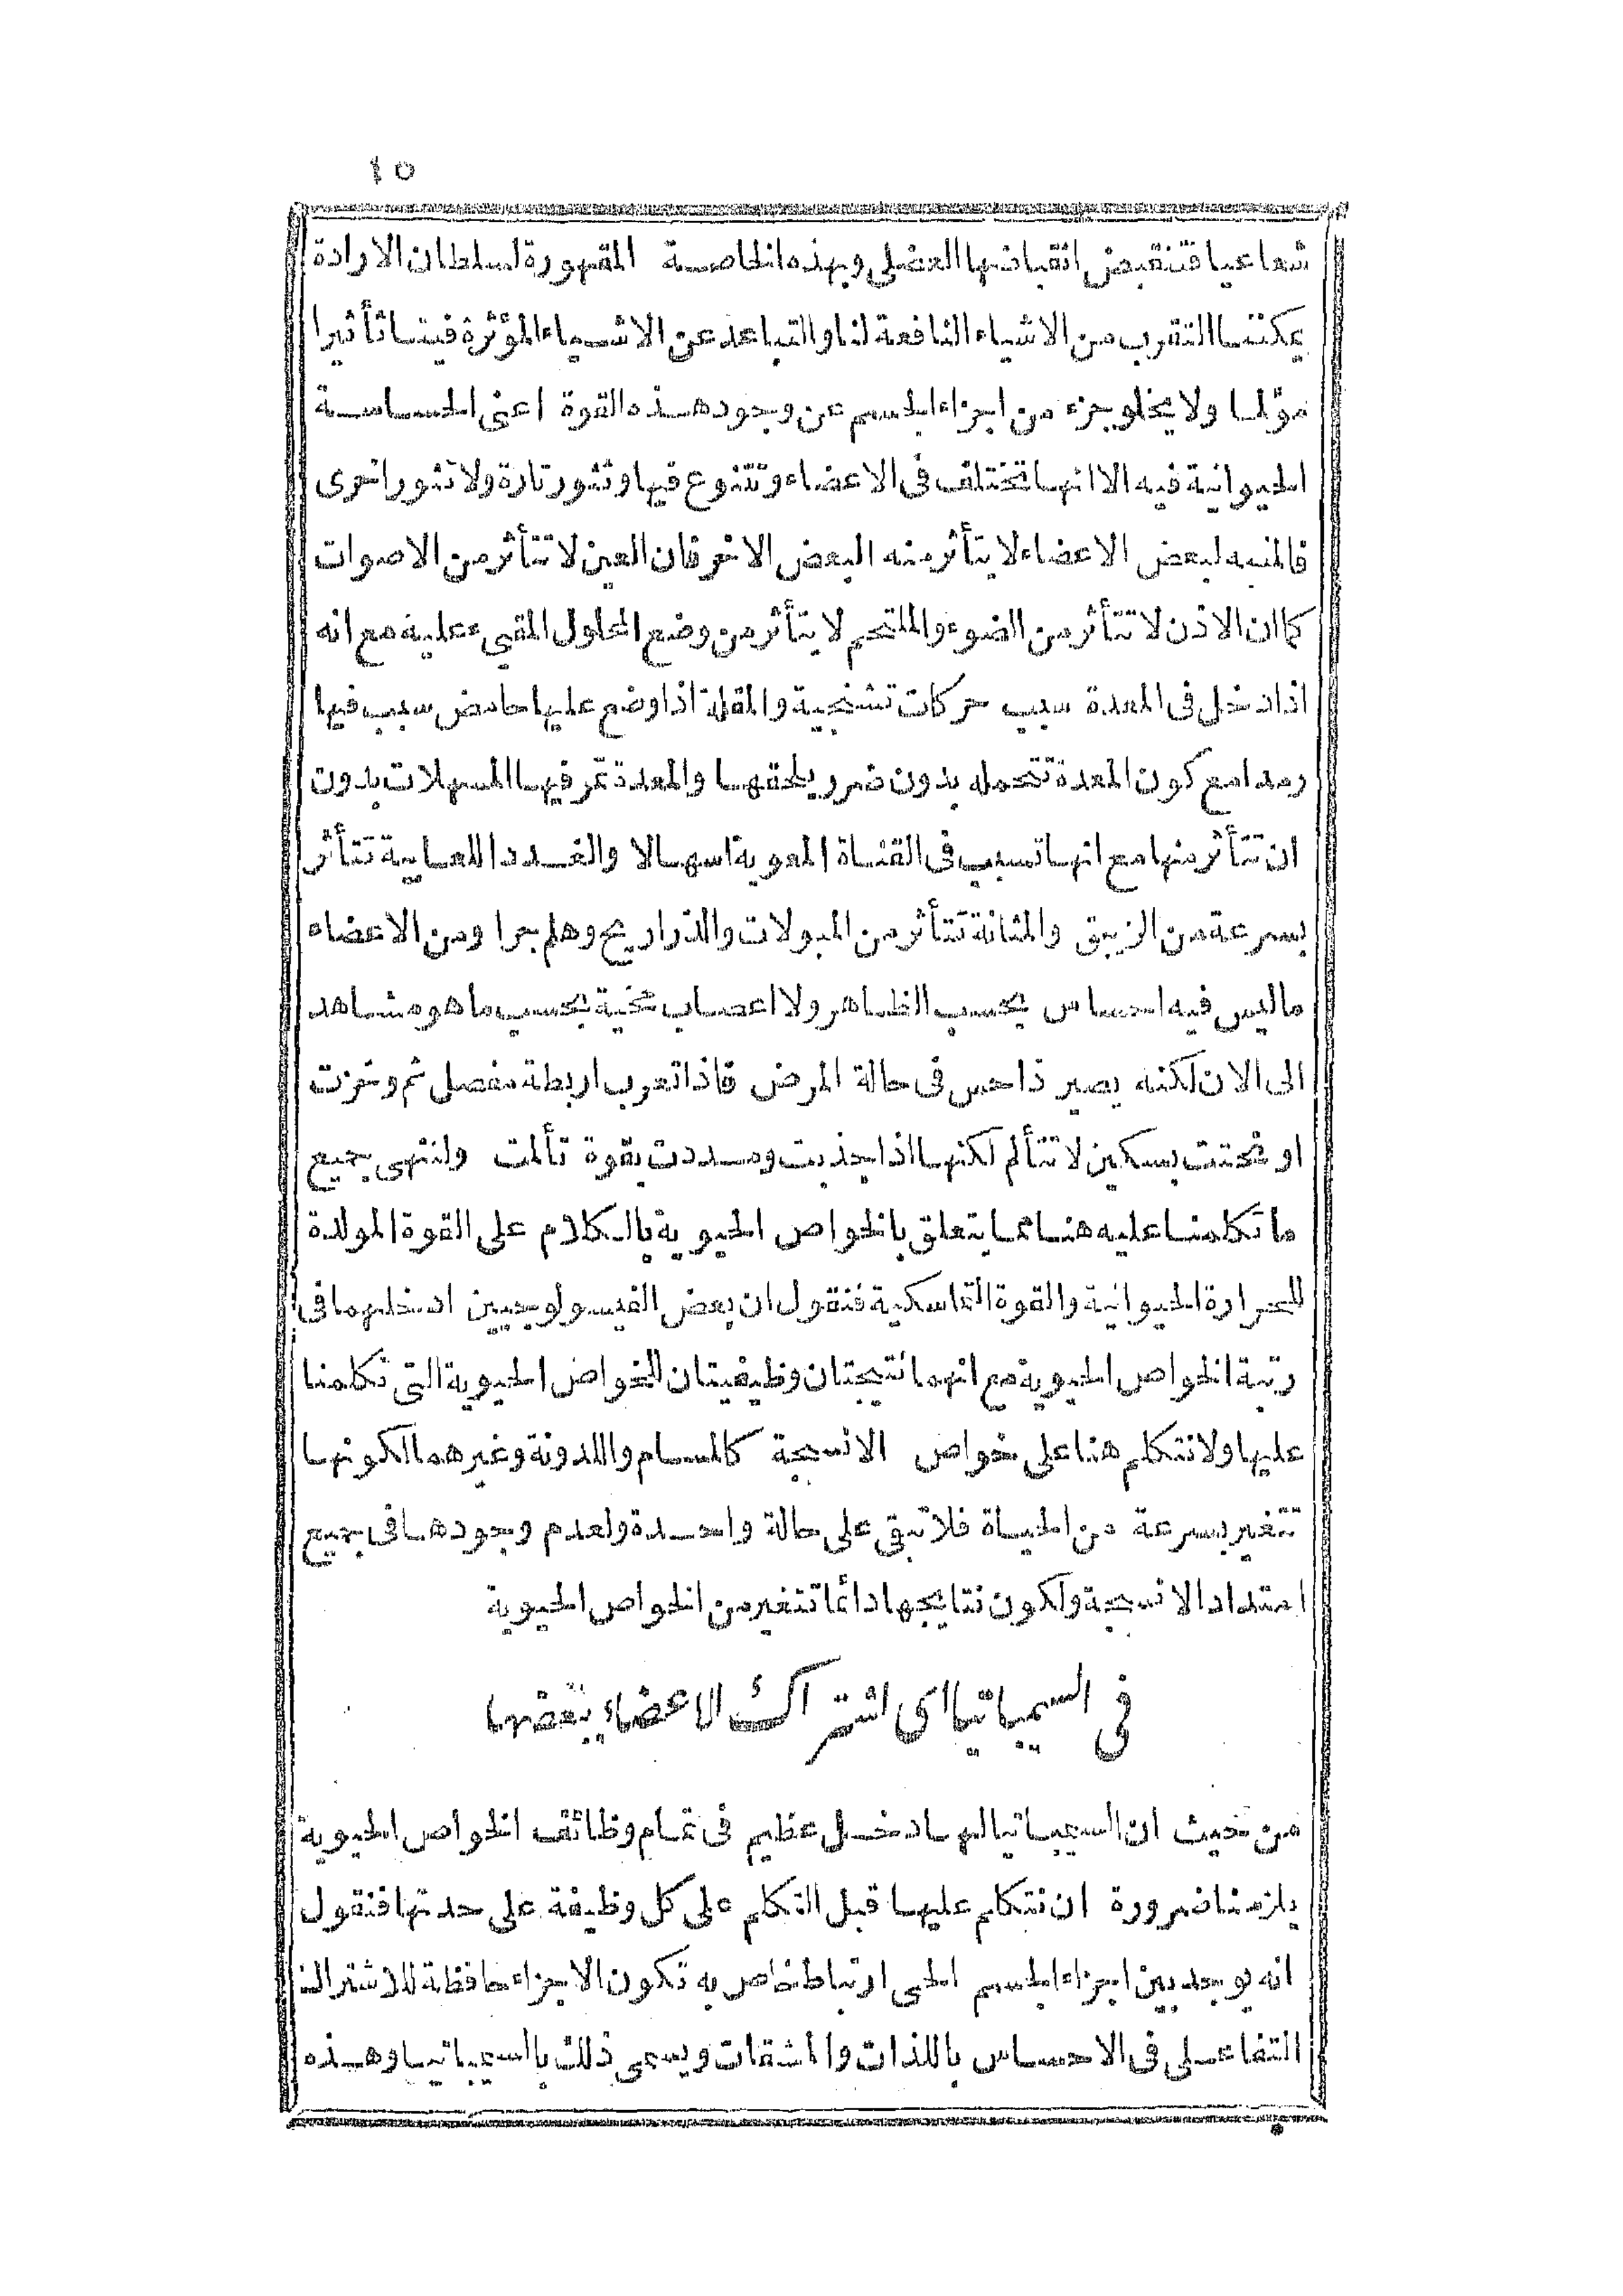 ١٥
شعاعيا فتنقبض انقباضها العضلى وبهذه الخاصة المقهورة لسلطان الارادة
يمكننا التقرب من الاشياء النافعة لنا والتباعد عن الاشياء المؤثرة فينا تأثيرا
مؤلما ولا يخلو جزء من اجزاء الجسم عن وجود هذه القوة اعنى الحساسة
الحيوانية فيه الا انها تختلف فى الاعضاء وتتنوع فيها وتثور تارة ولا تثور اخرى
فالمنبه لبعض الاعضاء لا يتأثر منه البعض الاخر فان العين لا تتأثر من الاصوات
كما ان الاذن لا تتأثر من الضوء والملتحم لا يتأثر من وضع المحلول المقيىء عليه مع انه
اذا دخل فى المعدة سبب حركات تشنجية والمقلة اذا وضع عليها حامض سبب فيها
رمدا مع كون المعدة تتحمله بدون ضرر يلحقها والمعدة تمر فيها المسهلات بدون
ان تتأثر منها مع انها تسبب فى القناة المعوية اسهالا والغدد اللعابية تتأثر
بسرعة من الزيبق والمثانة تتأثر من المبولات والذراريح وهلم جرا ومن الاعضاء
ما ليس فيه احساس بحسب الظاهر ولا اعصاب مخية بحسب ما هو مشاهد
الى الان لكنه يصير ذا حس فى حالة المرض فاذا تعرب اربطة مفصل ثم وخزت
او فتحت بسكين لا تتألم لكنها اذا جذبت ومددت بقوة تألمت ولننهى جميع
ما تكلمنا عليه هنا مما يتعلق بالخواص الحيوية بالكلام على القوة المولدة
للحرارة الحيوانية والقوة التماسكية فنقول ان بعض الفيسولوجيين ادخلهما فى
رتبة الخواص الحيوية مع انهما نتيجتان وظيفيتان للخواص الحيوية التى تكلمنا
عليها ولا نتكلم هنا على خواص الانسجة كالمسام واللدونة وغيرهما لكونها
تتغير بسرعة من الحياة فلا تبقى على حالة واحدة ولعدم وجودها فى جميع
امتداد الانسجة ولكون نتايجها دائما تتغير من الخواص الحيوية
فى السمباتيا اى اشتراك الاعضاء ببعضها
من حيث ان السمباتيا لها دخل عظيم فى تمام وظائف الخواص الحيوية
يلزمنا ضرورة ان نتكلم عليها قبل التكلم على كل وظيفة على حدتها فنقول
انه يوجد بين اجزاء الجسم الحى ارتباط خاص به تكون الاجزاء حافظة للاشتراك
التفاعلى فى الاحساس باللذات والمشقات ويسمى ذلك بالسمباتيا وهذه